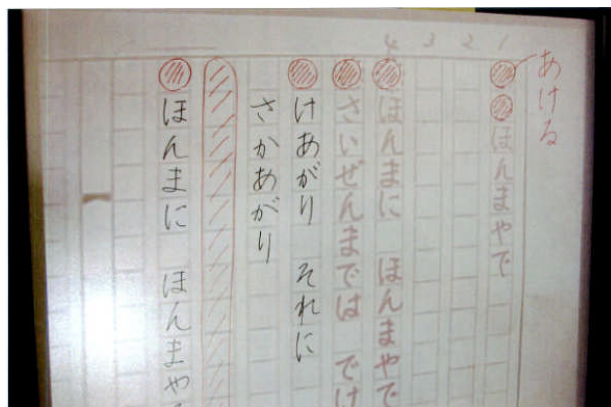 あける
1
2
3
4
ほんまやで
ほんまに ほんまやで
さいぜんまでは でけ
けあがり それに
さかあがり
ほんまに ほんまや